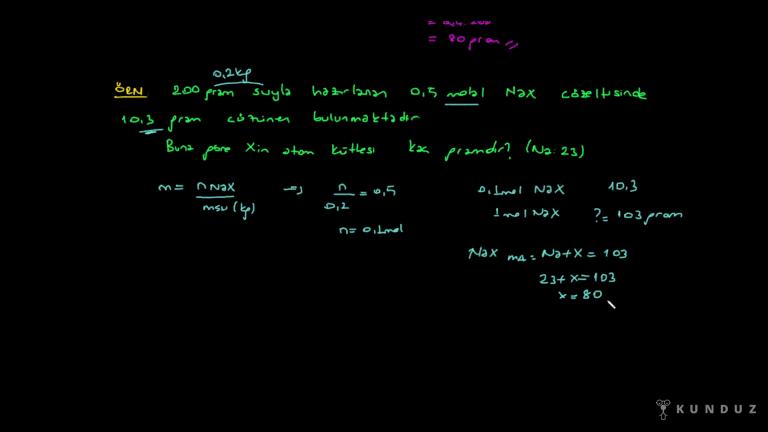 = 80 gram //
0,2kg
ÖRN 200 gram suyla hazırlanan 0,5 molal NaX çözeltisinde
10,3 gram çözünen bulunmaktadır
Buna göre X in atom kütlesi kaç gramdır? (Na: 23)
m = n NaX / msu (kg) → n / 0,2 = 0,5
n = 0,1 mol
0,1 mol NaX 10,3
1 mol NaX ? = 103 gram
NaX mA = Na + X = 103
23 + x = 103
x = 80
KUNDUZ